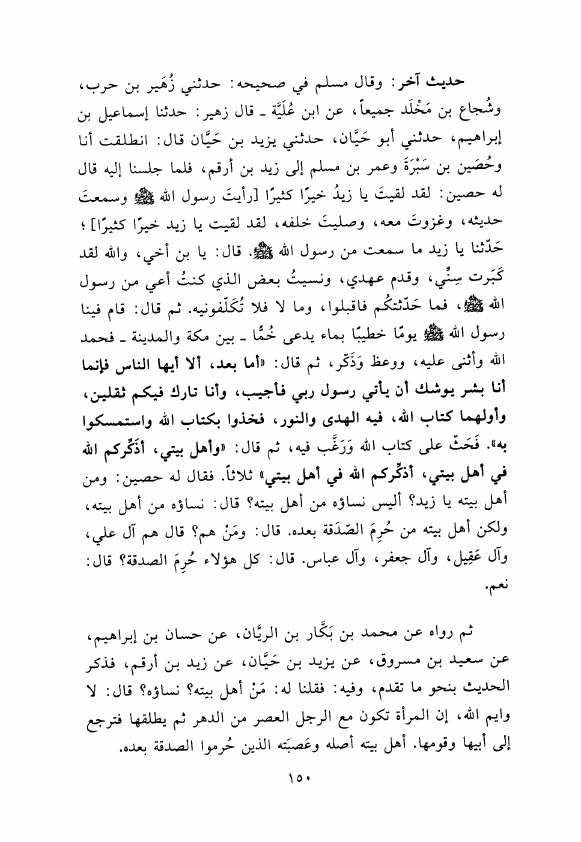 حديث آخر: وقال مسلم في صحيحه: حدثني زُهَير بن حرب،
وشُجاع بن مَخْلَد جميعاً، عن ابن عُلَيَّة ـ قال زهير: حدثنا إسماعيل بن
إبراهيم، حدثني أبو حَيَّان، حدثني يزيد بن حَيَّان قال: انطلقت أنا
وحُصَين بن سَبْرَةَ وعمر بن مسلم إلى زيد بن أرقم، فلما جلسنا إليه قال
له حصين: لقد لقيتَ يا زيدُ خيرًا كثيرًا [رأيتَ رسول الله ﷺ وسمعتَ
حديثه، وغزوتَ معه، وصليتَ خلفه، لقد لقيت يا زيد خيرًا كثيرًا]؛
حَدّثنا يا زيد ما سمعت من رسول الله ﷺ. قال: يا بن أخي، والله لقد
كَبَرت سِنِّي، وقدم عهدي، ونسيتُ بعض الذي كنتُ أعي من رسول
الله ﷺ، فما حَدّثتكُم فاقبلوا، وما لا فلا تُكَلّفونيه. ثم قال: قام فينا
رسول الله ﷺ يومًا خطيبًا بماء يدعى خُمًّا ـ بين مكة والمدينة ـ فحمد
الله وأثنى عليه، ووعظ وَذَكّر، ثم قال: «أما بعد، ألا أيها الناس فإنما
أنا بشر يوشك أن يأتي رسول ربي فأجيب، وأنا تارك فيكم ثقلين،
وأولهما كتاب الله، فيه الهدى والنور، فخذوا بكتاب الله واستمسكوا
به». فَحَثّ على كتاب الله وَرَغَّب فيه، ثم قال: «وأهل بيتي، أذَكّركم الله
في أهل بيتي، أذكّركم الله في أهل بيتي» ثلاثاً. فقال له حصين: ومن
أهل بيته يا زيد؟ أليس نساؤه من أهل بيته؟ قال: نساؤه من أهل بيته،
ولكن أهل بيته من حُرِمَ الصّدَقة بعده. قال: ومَنْ هم؟ قال هم آل علي،
وآل عَقِيل، وآل جعفر، وآل عباس. قال: كل هؤلاء حُرِمَ الصدقة؟ قال:
نعم.
ثم رواه عن محمد بن بَكَّار بن الريَّان، عن حسان بن إبراهيم،
عن سعيد بن مسروق، عن يزيد بن حَيَّان، عن زيد بن أرقم، فذكر
الحديث بنحو ما تقدم، وفيه: فقلنا له: مَنْ أهل بيته؟ نساؤه؟ قال: لا
وايم الله، إن المرأة تكون مع الرجل العصر من الدهر ثم يطلقها فترجع
إلى أبيها وقومها. أهل بيته أصله وعَصبَته الذين حُرموا الصدقة بعده.
١٥٠